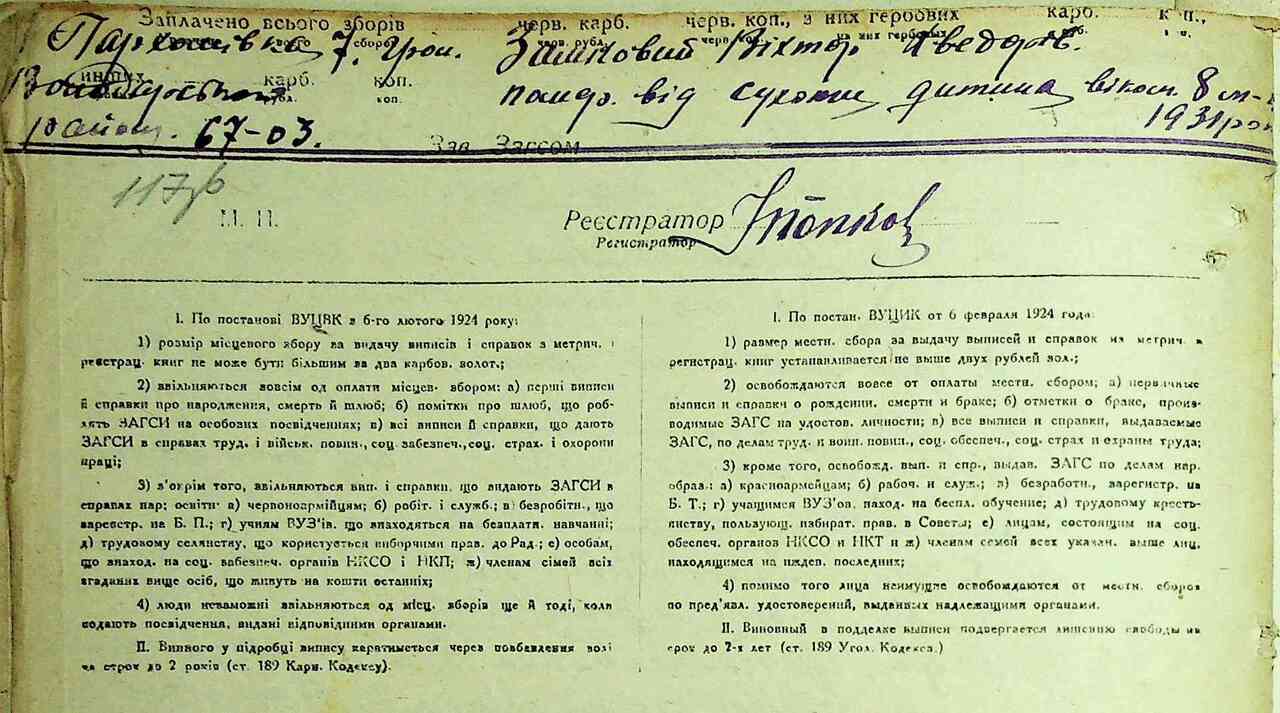 Заплачено всього зборів черв. карб. черв. коп., з них гербових карб. к п.,
сбор черв. рубл. черв. коп. из них гербовых
Пархомівка 7. гром. Замковий Віктор Хведорів.
инших карб. коп.
коп.
помер. від сухоти дитина віком 8 м-
район. 67-03. 1931 рок
Зав. Загсом
117
М. П. Реєстратор
Регистратор
I. По постанові ВУЦВК з 6-го лютого 1924 року:
1) розмір місцевого збору за видачу виписів і справок з метрич. і
реєстрац. книг не може бути більшим за два карбов. волот.;
2) звільняються зовсім од оплати місцев. збором: а) перші виписи
й справки про народження, смерть й шлюб; б) помітки про шлюб, що роб-
лять ЗАГСИ на особових посвідченнях; в) всі виписи й справки, що дають
ЗАГСИ в справах труд. і військ. повин., соц. забезпеч., соц. страх. і охорони
праці;
3) з'окрім того, звільняються вип. і справки, що видають ЗАГСИ в
справах нар; освіти: а) червоноармійцям; б) робіт. і служб.; в) безробітн., що
зареєстр. на Б. П.; г) учням ВУЗ'їв, що знаходяться на безплатн. навчанні;
д) трудовому селянству, що користується виборчими прав. до Рад.; е) особам,
що знаход. на соц. забезпеч. органів НКСО і НКП; ж) членам сімей всіх
згаданих вище осіб, що живуть на кошти останніх;
4) люди незаможні звільняються од місц. зборів ще й тоді, коли
подають посвідчення, видані відповідними органами.
II. Винного у підробці випису каратиметься через позбавлення волі
на строк до 2 років (ст. 189 Карн. Кодексу).
I. По постан. ВУЦИК от 6 февраля 1924 года:
1) размер местн. сбора за выдачу выписей и справок из метрич. и
регистрац. книг устанавливается не выше двух рублей зол.;
2) освобождаются вовсе от оплаты местн. сбором; а) первичные
выписи и справки о рождении, смерти и браке; б) отметки о браке, произ-
водимые ЗАГС на удостов. личности; в) все выписи и справки, выдаваемые
ЗАГС, по делам труд. и воин. повин., соц. обеспеч., соц. страх и охраны труда;
3) кроме того, освобожд. вып. и спр., выдав. ЗАГС по делам нар.
образ.: а) красноармейцам; б) рабоч. и служ.; в) безработн., зарегистр. на
Б. Т.; г) учащимся ВУЗ'ов, наход. на беспл. обучение; д) трудовому кресть-
янству, пользующ. избират. прав. в Советы; е) лицам, состоящим на соц.
обеспеч. органов НКСО и НКТ и ж) членам семей всех указан. выше лиц,
находящимся на иждев. последних;
4) помимо того лица неимущие освобождаются от местн. сборов
по пред'явл. удостоверений, выданных надлежащими органами.
II. Виновный в подделке выписи подвергается лишению свободы на
срок до 2-х лет (ст. 189 Угол. Кодекса.)